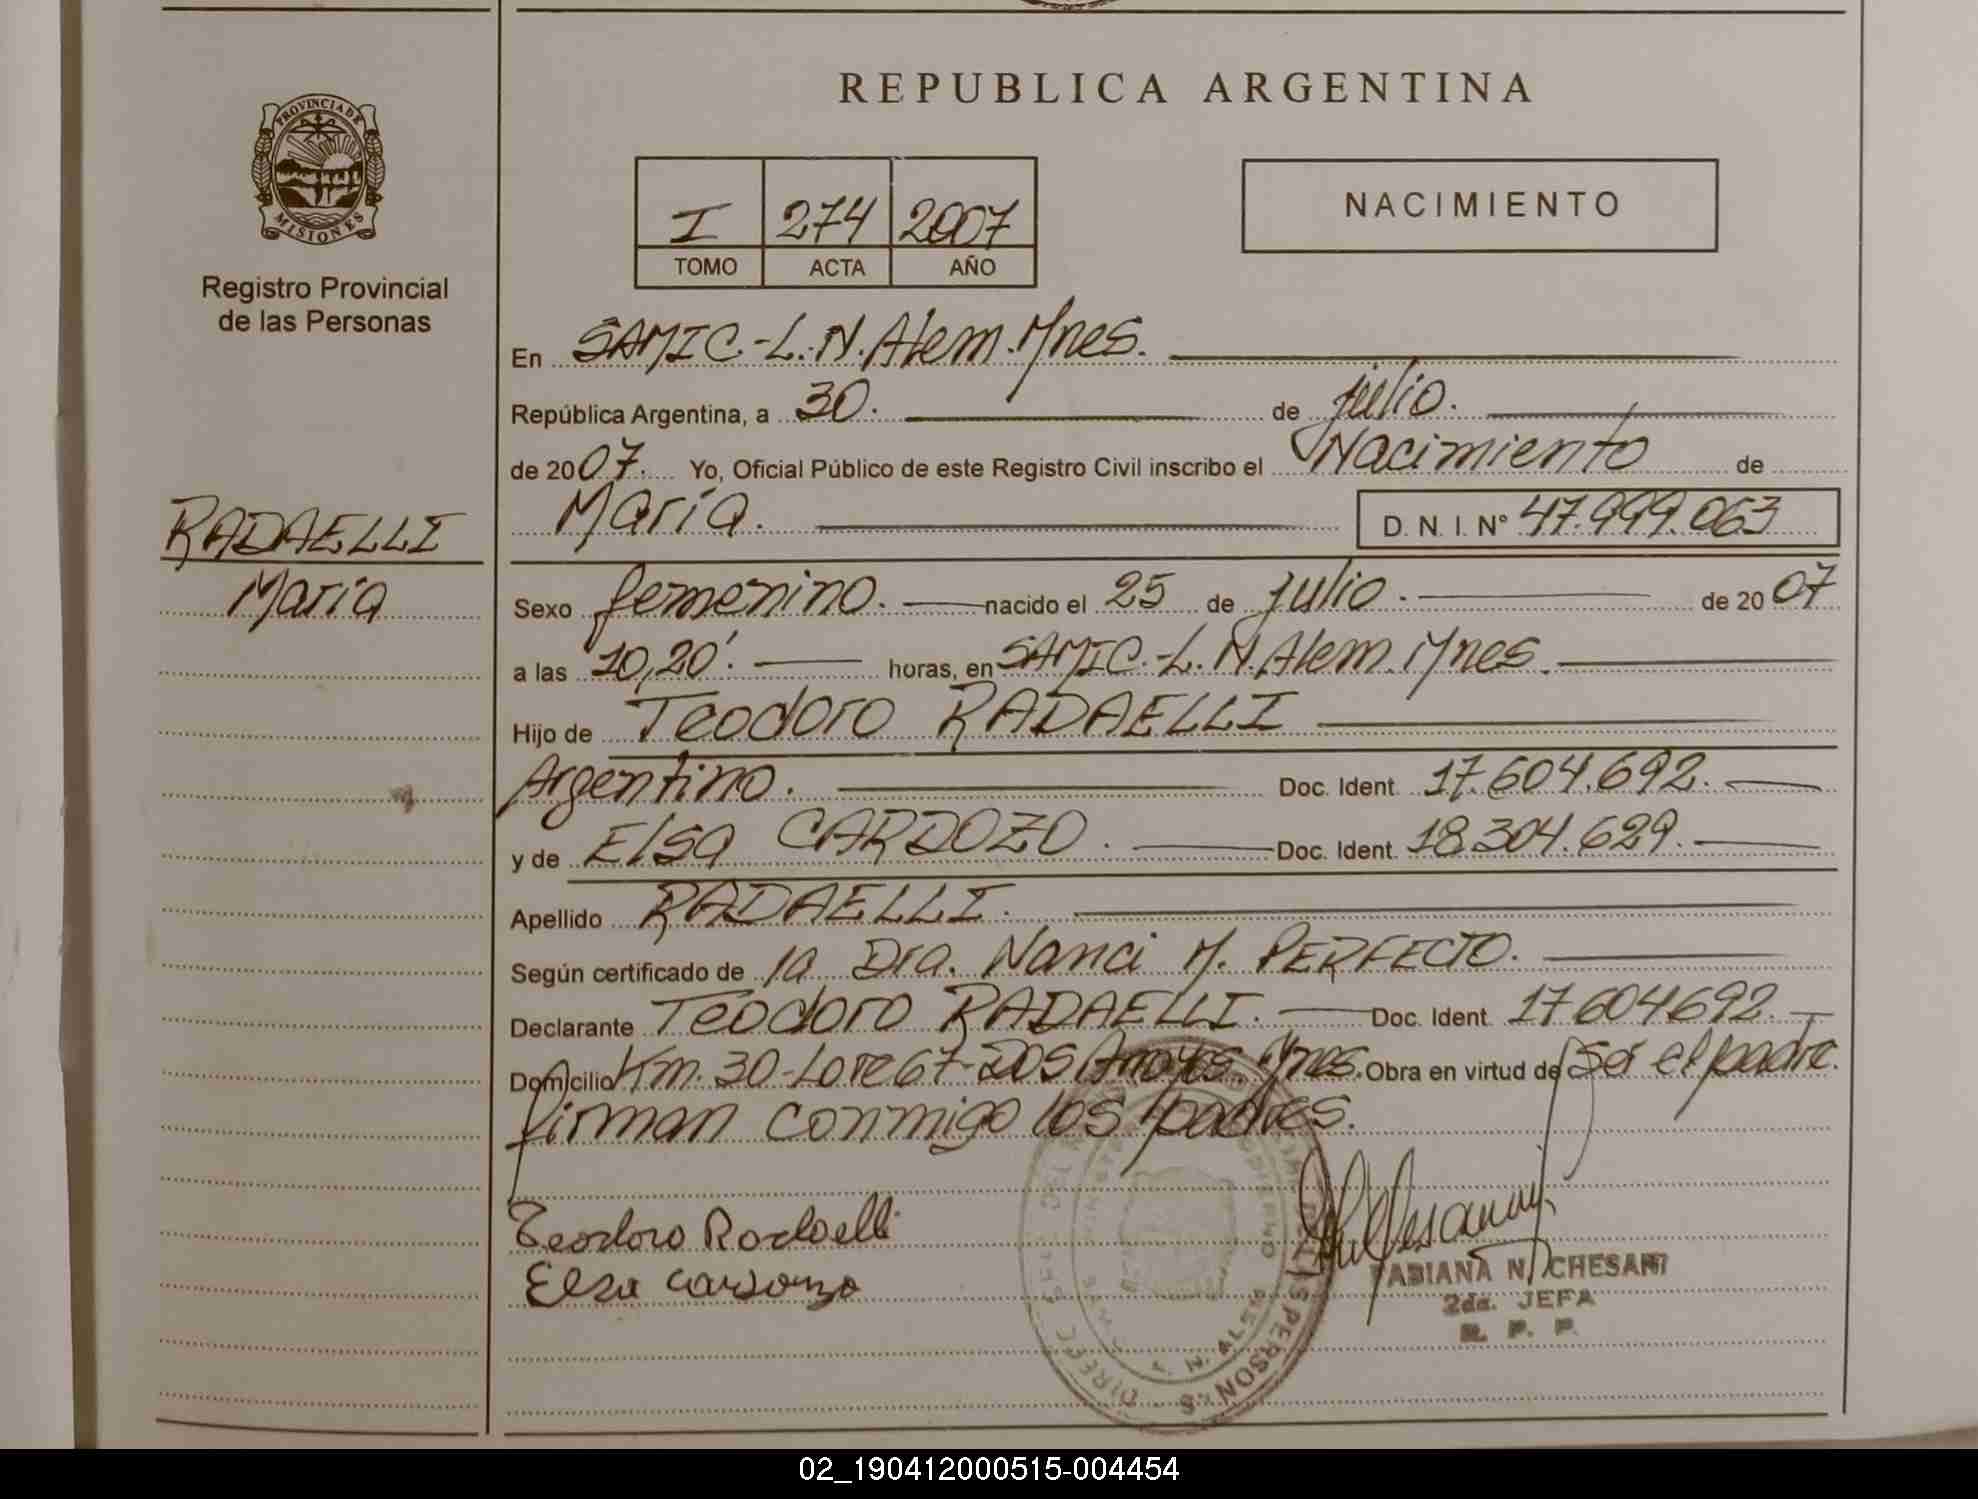 REPUBLICA ARGENTINA
PROVINCIA DE MISIONES
Registro Provincial
de las Personas
I 274 2007
TOMO ACTA AÑO
NACIMIENTO
En SAMIC.-L.N.Alem.Mnes.
República Argentina, a 30. de julio.
de 2007. Yo, Oficial Público de este Registro Civil inscribo el Nacimiento de
María. D. N. I. N° 47.999.063
RADAELLI
María
Sexo femenino. nacido el 25 de julio. de 2007
a las 10,20'. horas, en SAMIC.-L.N.Alem.Mnes.
Hijo de Teodoro RADAELLI
Argentino. Doc. Ident. 17.604.692.
y de Elsa CARDOZO. Doc. Ident. 18.304.629.
Apellido RADAELLI.
Según certificado de la Dra. Nanci M. PERFECTO.
Declarante Teodoro RADAELLI. Doc. Ident. 17604692.
Domicilio Km. 30-Lote 67-DOS Arroyos. Mnes. Obra en virtud de ser el padre.
firman conmigo los padres.
Teodoro Radaelli
Elsa Cardozo
FABIANA N. CHESANI
2da. JEFA
R. P. P.
02_190412000515-004454